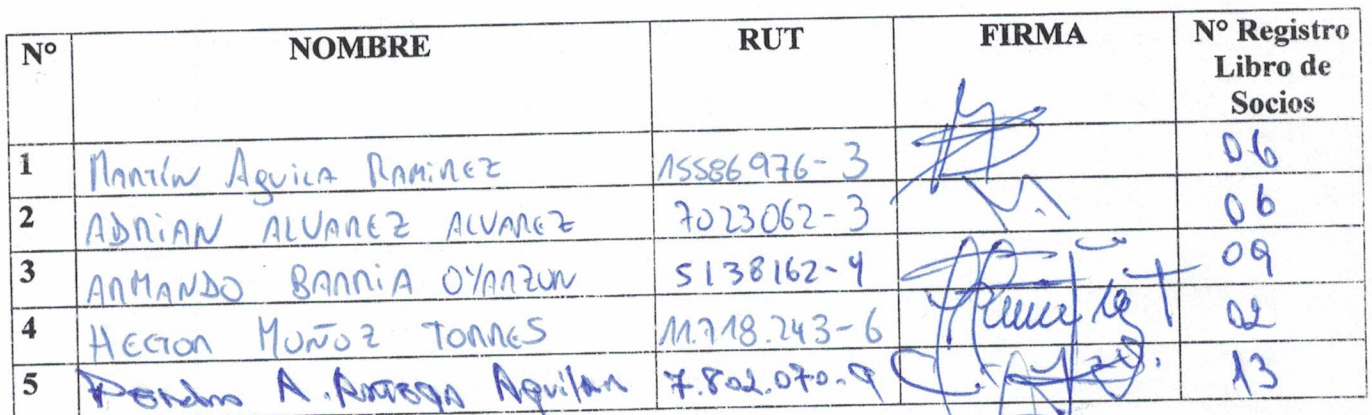 N° NOMBRE RUT FIRMA N° Registro
Libro de
Socios
1 Martín Aguila Ramirez 15586976-3 06
2 ADRIAN ALVAREZ ALVAREZ 7023062-3 06
3 ARMANDO BARRIA OYARZUN 5138162-4 09
4 HECTOR MUÑOZ TORRES 11.718.243-6 02
5 A. Aguilar 7.802.070-9 13